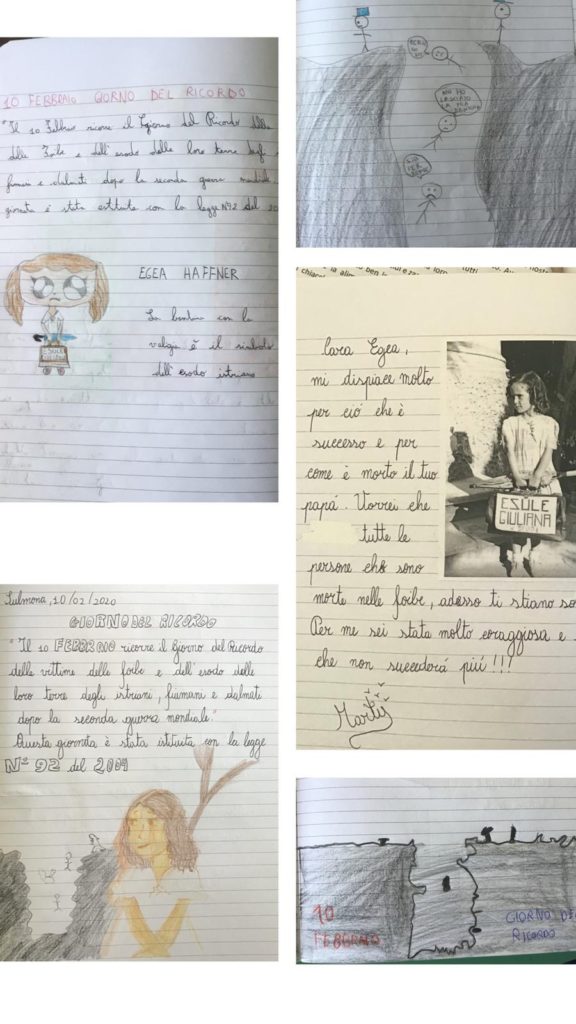 10 FEBBRAIO GIORNO DEL RICORDO
"Il 10 Febbraio ricorre il Giorno del Ricordo delle
delle Foibe e dell'esodo delle loro terre degli
fiumani e dalmati dopo la seconda guerra mondiale
giornata è stata istituita con la legge N°92 del 20
EGEA HAFFNER
La bambina con la
valigia è il simbolo
dell'esodo istriano
ESULE
GIULIANA
Sulmona, 10/02/2020
GIORNO DEL RICORDO
"Il 10 FEBBRAIO ricorre il Giorno del Ricordo
delle vittime delle foibe e dell'esodo delle
loro terre degli istriani, fiumani e dalmati
dopo la seconda guerra mondiale."
Questa giornata è stata istituita con la legge
N° 92 del 2004
NON HO
LASCIATO
LA MIA
Cara Egea,
mi dispiace molto
per ció che è
successo e per
come è morto il tuo
papá. Vorrei che
tutte le
persone che sono
morte nelle foibe, adesso ti stiano so
Per me sei stata molto coraggiosa e s
che non succederá piú!!!
Marty
ESULE
GIULIANA
10
FEBBRAIO
GIORNO DEL
RICORDO